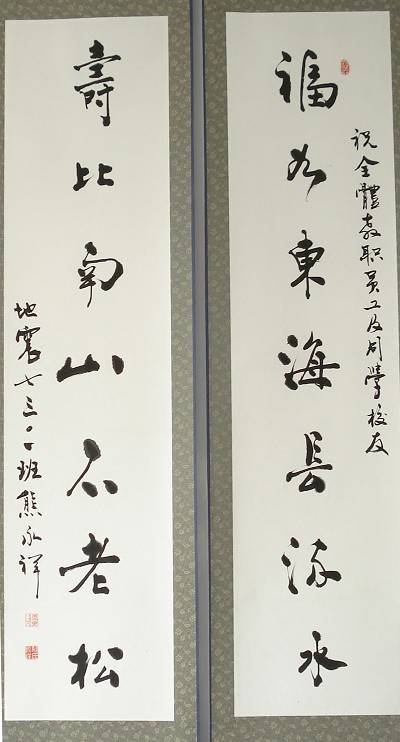 祝全體教职员工及同學校友
福如東海長流水
壽比南山不老松
地震七三〇一班熊永祥